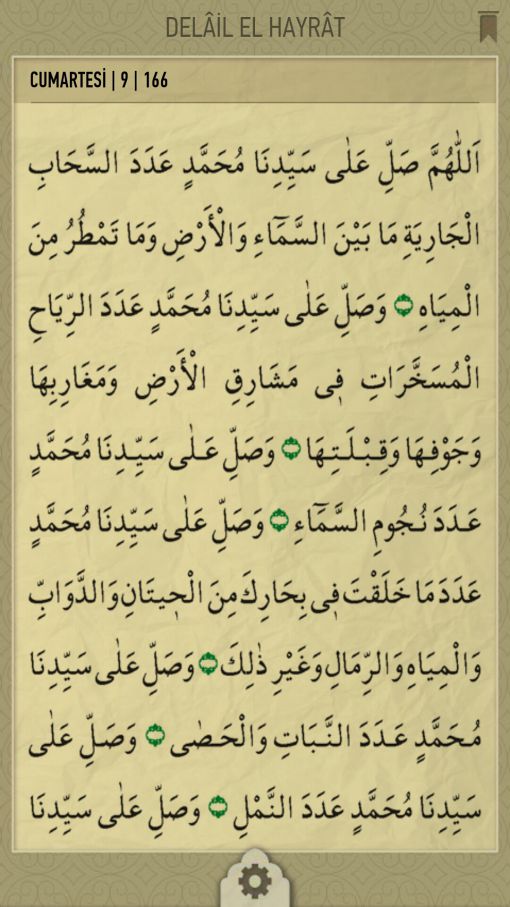 DELÂİL EL HAYRÂT
CUMARTESİ | 9 | 166
اَللّٰهُمَّ صَلِّ عَلٰى سَيِّدِنَا مُحَمَّدٍ عَدَدَ السَّحَابِ
الْجَارِيَةِ مَا بَيْنَ السَّمَٓاءِ وَالْأَرْضِ وَمَا تَمْطُرُ مِنَ
الْمِيَاهِ ۝ وَصَلِّ عَلٰى سَيِّدِنَا مُحَمَّدٍ عَدَدَ الرِّيَاحِ
الْمُسَخَّرَاتِ فِى مَشَارِقِ الْأَرْضِ وَمَغَارِبِهَا
وَجَوْفِهَا وَقِبْلَتِهَا ۝ وَصَلِّ عَلٰى سَيِّدِنَا مُحَمَّدٍ
عَدَدَ نُجُومِ السَّمَٓاءِ ۝ وَصَلِّ عَلٰى سَيِّدِنَا مُحَمَّدٍ
عَدَدَ مَا خَلَقْتَ فِى بِحَارِكَ مِنَ الْحِيتَانِ وَالدَّوَابِّ
وَالْمِيَاهِ وَالرِّمَالِ وَغَيْرِ ذٰلِكَ ۝ وَصَلِّ عَلٰى سَيِّدِنَا
مُحَمَّدٍ عَدَدَ النَّبَاتِ وَالْحَصٰى ۝ وَصَلِّ عَلٰى
سَيِّدِنَا مُحَمَّدٍ عَدَدَ النَّمْلِ ۝ وَصَلِّ عَلٰى سَيِّدِنَا